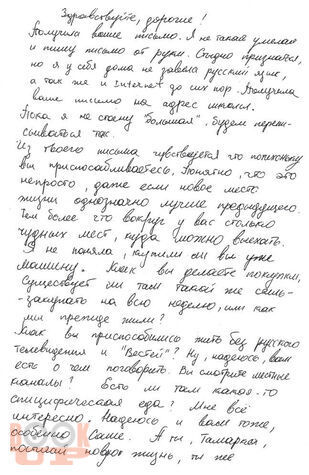 Здравствуйте, дорогие!
Получила ваше письмо. Я не такая умелая
и пишу письмо от руки. Стыдно признаться,
но я у себя дома не завела русский язык,
а так же и Internet до сих пор. Получила
ваше письмо на адрес школы.
Пока я не стану "большая", будем перепи-
сываться так.
Из твоего письма чувствуется что потихоньку
вы приспосабливаетесь. Понятно, что это
непросто, даже если новое место
жизни однозначно лучше предыдущего.
Тем более что вокруг у вас столько
чудных мест, куда можно выехать.
Я не поняла, купили ли вы уже
машину. Как вы делаете покупки,
Существует ли там такой же
закупать на всю неделю, или как
мы прежде жили?
Как вы приспособились жить без русского
телевидения и "Вестей"? Ну, надеюсь, вам
есть о чем поговорить. Вы смотрите местные
каналы? Есть ли там какая-то
специфическая еда? Мне всё
интересно. Надеюсь и вам тоже,
особенно Саше. А ты, Тамарка,
новую жизнь, ты же